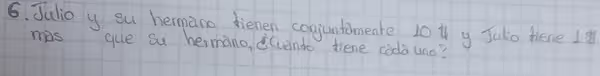 6. Julio y su hermano tienen conjuntamente 10 $ y Julio tiene 1 $
mas que su hermano, ¿Cuánto tiene cada uno?